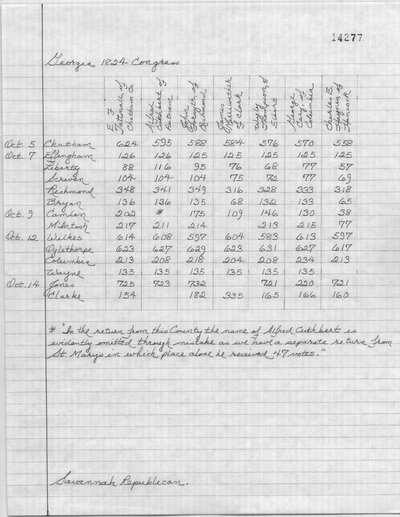 14277
Georgia 1824 Congress
E. F. Tattnall of Chatham Co. Alfred Cuthbert of Putnam John Forsyth of Richmond James Meriwether of Clark Wiley Thompson of Elbert George Cary of Columbia Charles E. Haynes of Hancock
Oct. 5 Chatham 624 595 588 584 576 570 558
Oct. 7 Effingham 126 126 125 125 125 125 125
Liberty 88 116 95 76 68 77 57
Screven 104 104 104 75 72 77 69
Richmond 348 341 349 316 328 333 318
Bryan 136 136 135 68 132 133 65
Oct. 9 Camden 202 * 175 109 146 130 38
McIntosh 217 211 214 213 215 77
Oct. 12 Wilkes 614 608 597 604 583 613 597
Oglethorpe 623 627 629 623 631 627 617
Columbia 213 208 218 204 208 234 213
Wayne 135 135 135 135 135 135
Oct. 14 Jones 725 723 732 721 220 721
Clarke 154 182 335 165 166 160
* "In the return from this County the name of Alfred Cuthbert is
evidently omitted through mistake as we have a separate return from
St. Marys in which place alone he received 47 votes."
Savannah Republican.